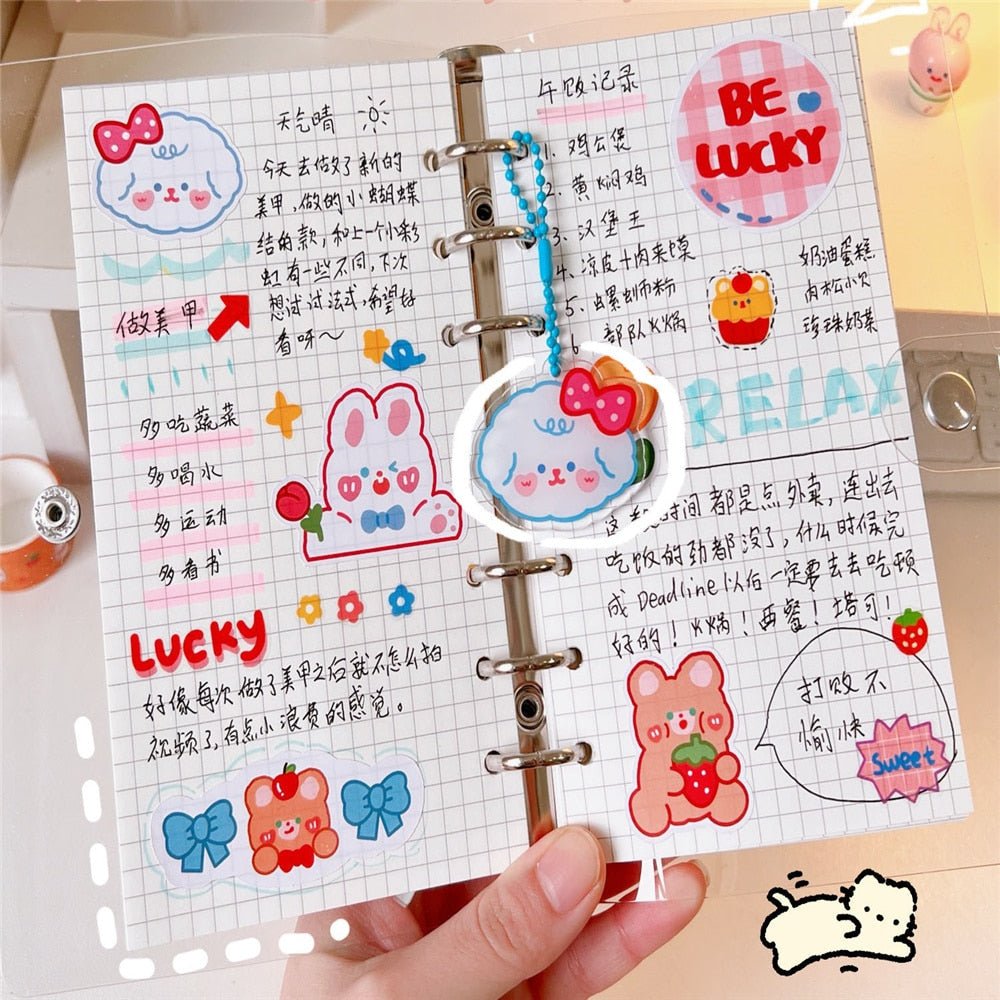 天气晴
今天去做了新的
美甲,做的小蝴蝶
结的款,和上一个小彩
虹有一些不同,下次
想试试法式,希望好
看呀~
做美甲
多吃蔬菜
多喝水
多运动
多看书
LUCKY
好像每次做了美甲之后就不怎么拍
视频了,有点小浪费的感觉。
午饭记录
1. 鸡公煲
2. 黄焖鸡
3. 汉堡王
4. 凉皮+肉夹馍
5. 螺蛳粉
6 部队火锅
BE
LUCKY
奶油蛋糕
肉松小贝
珍珠奶茶
RELAX
这段时间都是点外卖,连出去
吃饭的劲都没了,什么时候完
成Deadline以后一定要去去吃顿
好的!火锅!西餐!塔可!
打败不
愉快
Sweet